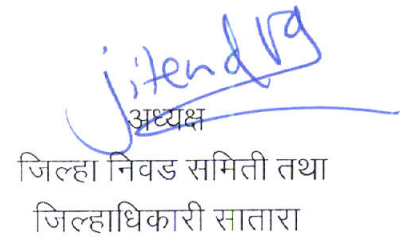 Jitendra
अध्यक्ष
जिल्हा निवड समिती तथा
जिल्हाधिकारी सातारा